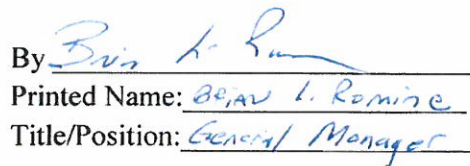 By Brian L. Romine
Printed Name: BRIAN L. Romine
Title/Position: General Manager